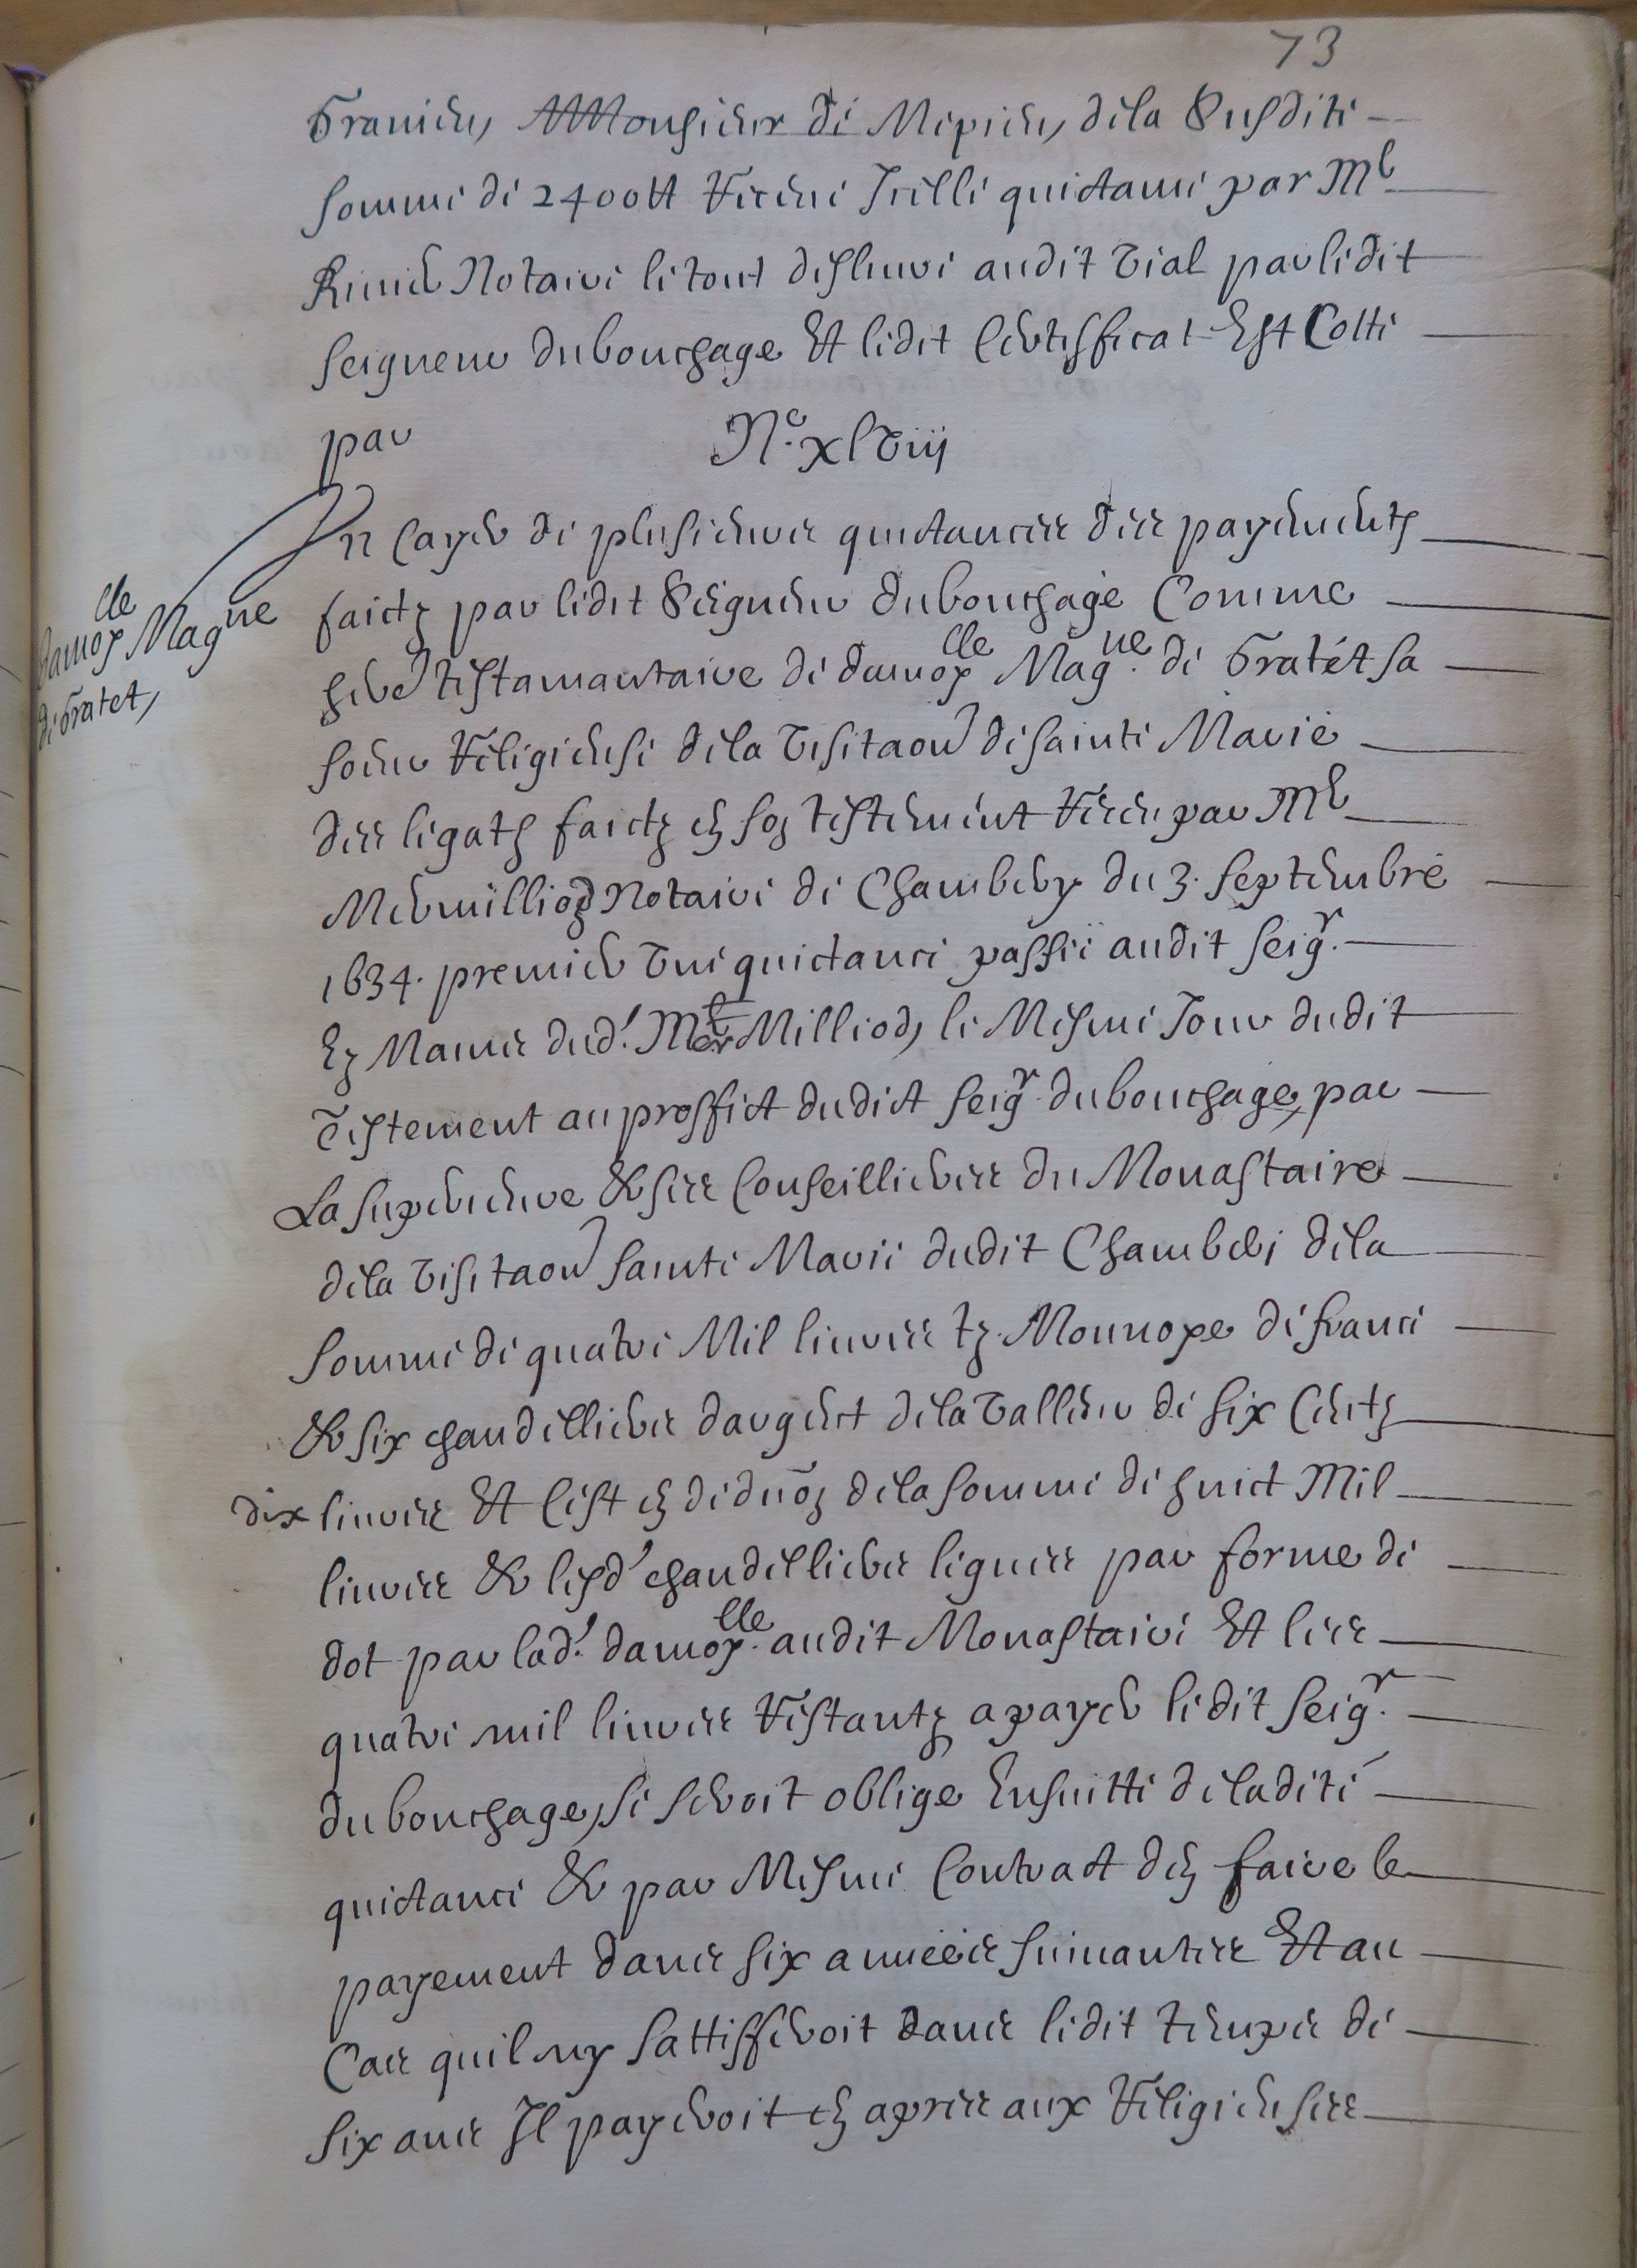 73
Granieu, Monsieur de Mepieu, dela Susditte
somme de 2400tt Receue Icelle quictance par Me
Notaire le tout deslivré audit Vial par ledit
Seigneur dubouchage Et ledit Certifficat Est Cotté
par No. xlViij
Vn Cayer de plusieurs quictances des payements
faictz par ledit Seigneur dubouchage Comme
her testamantaire de damoyelle Magne. de Gratet sa
soeur Religieuse dela Visitaon de sainte Marie
damoyelle Magne
de Gratet,
des legats faictz en son testement Receu par Me
Mermilliod Notaire de Chambery du 3. septembre
1634. premier Vne quictance passée audit seigr.
Ez Mains dud. Me Mermilliod, le Mesme Jour dudit
Testement au proffict dudict seigr. dubouchage, par
La superieure & ses Conseillieres du Monastaire
dela Visitaon sainte Marie dudit Chamberi dela
somme de quatre Mil liures tz. Monnoye de france
& six chandelliers dargent dela Valleur de six Centz
dix liures Et Cest en deduon dela somme de huict Mil
liures & lesd. chandelliers legués par forme de
dot par lad. damoyelle. audit Monastaire Et les
quatre mil liures Restantz a payer ledit seigr.
dubouchage, se seroit oblige Ensuitte deladite
quictance & par Mesme Contract den faire le
payement dans six années suiuantes Et au
Cas quil ny sattisferoit dans ledit temps de
six ans Il payeroit en apres aux Religieuses